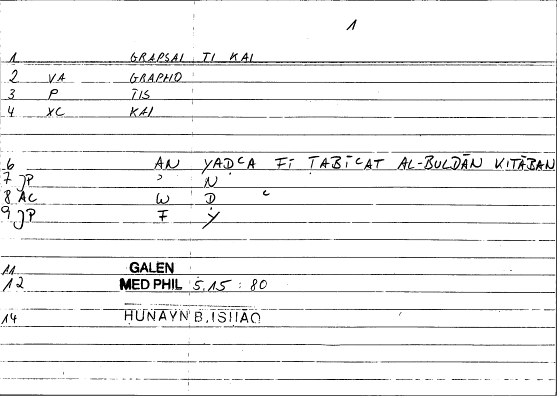 1
1 GRAPSAI TI KAI
2 VA GRAPHO
3 P TIS
4 XC KAI
6 AN YADCA FI TABICAT AL-BULDĀN KITĀBAN
7 JP ' N
8 AC W D C
9 JP F Y
11 GALEN
12 MED PHIL 5.15 : 80
14 HUNAYN B. ISHAQ